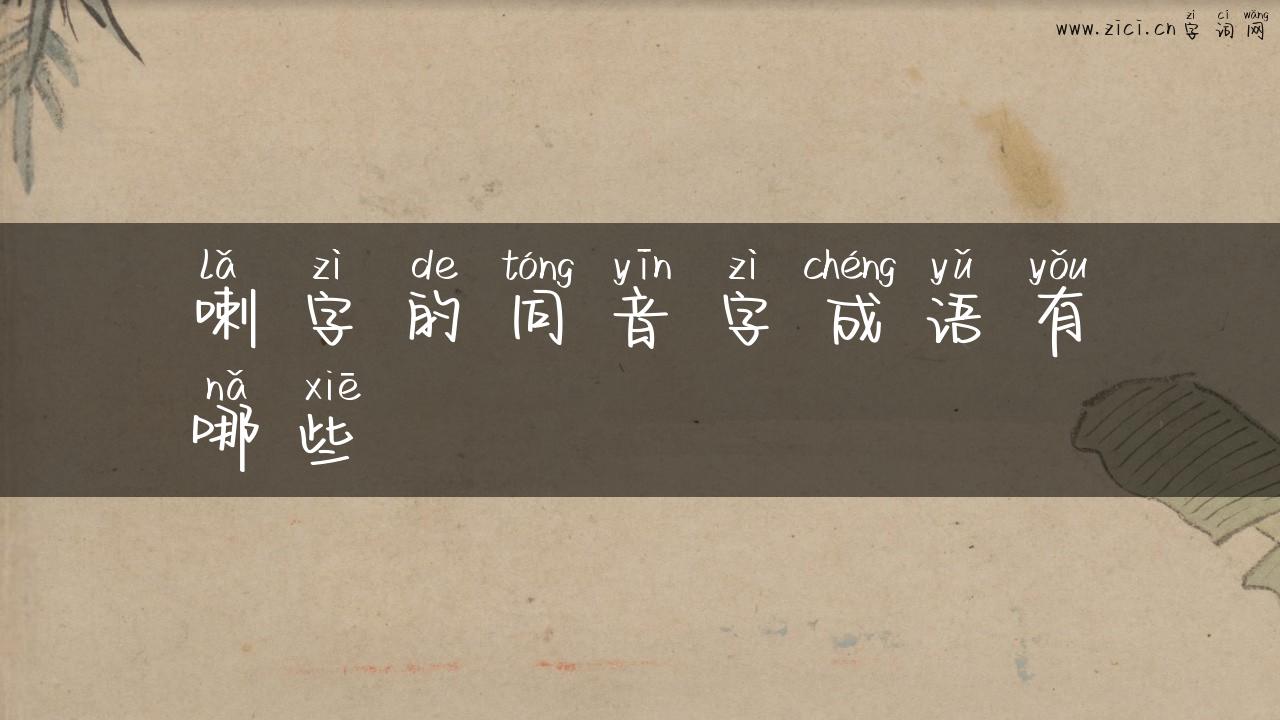 zì cí wǎng
www.zici.cn 字 词 网
lǎ zì de tóng yīn zì chéng yǔ yǒu
喇 字 的 同 音 字 成 语 有
nǎ xiē
哪 些